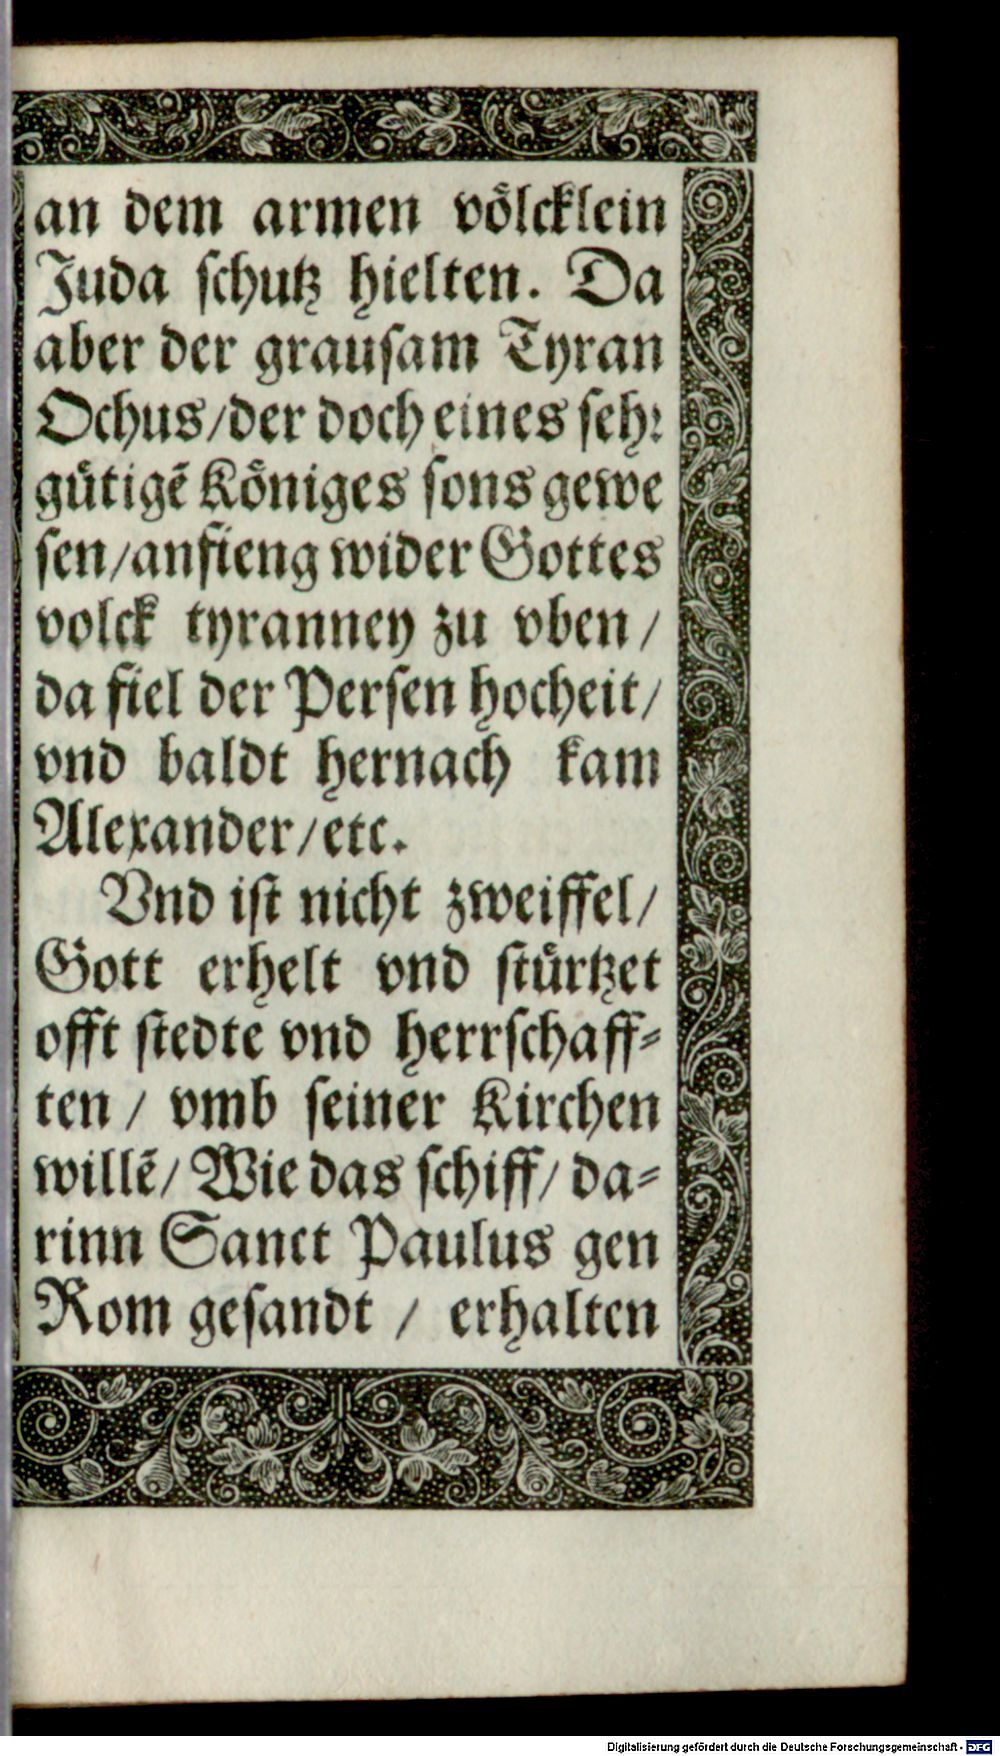 an dem armen voͤlcklein
Juda ſchutz hielten. Da
aber der grauſam Tyran
Ochus/der doch eines ſehꝛ
guͤtigẽ Koͤniges ſons gewe
ſen/anfieng wider Gottes
volck tyranney zu vben/
da fiel der Perſen hocheit/
vnd baldt hernach kam
Alexander/etc.
Vnd iſt nicht zweiffel/
Gott erhelt vnd ſtuͤrtzet
offt ſtedte vnd herrſchaff⸗
ten / vmb ſeiner Kirchen
willẽ/ Wie das ſchiff/ da⸗
rinn Sanct Paulus gen
Rom geſandt / erhalten
Digitalisierung gefördert durch die Deutsche Forschungsgemeinschaft - DFG